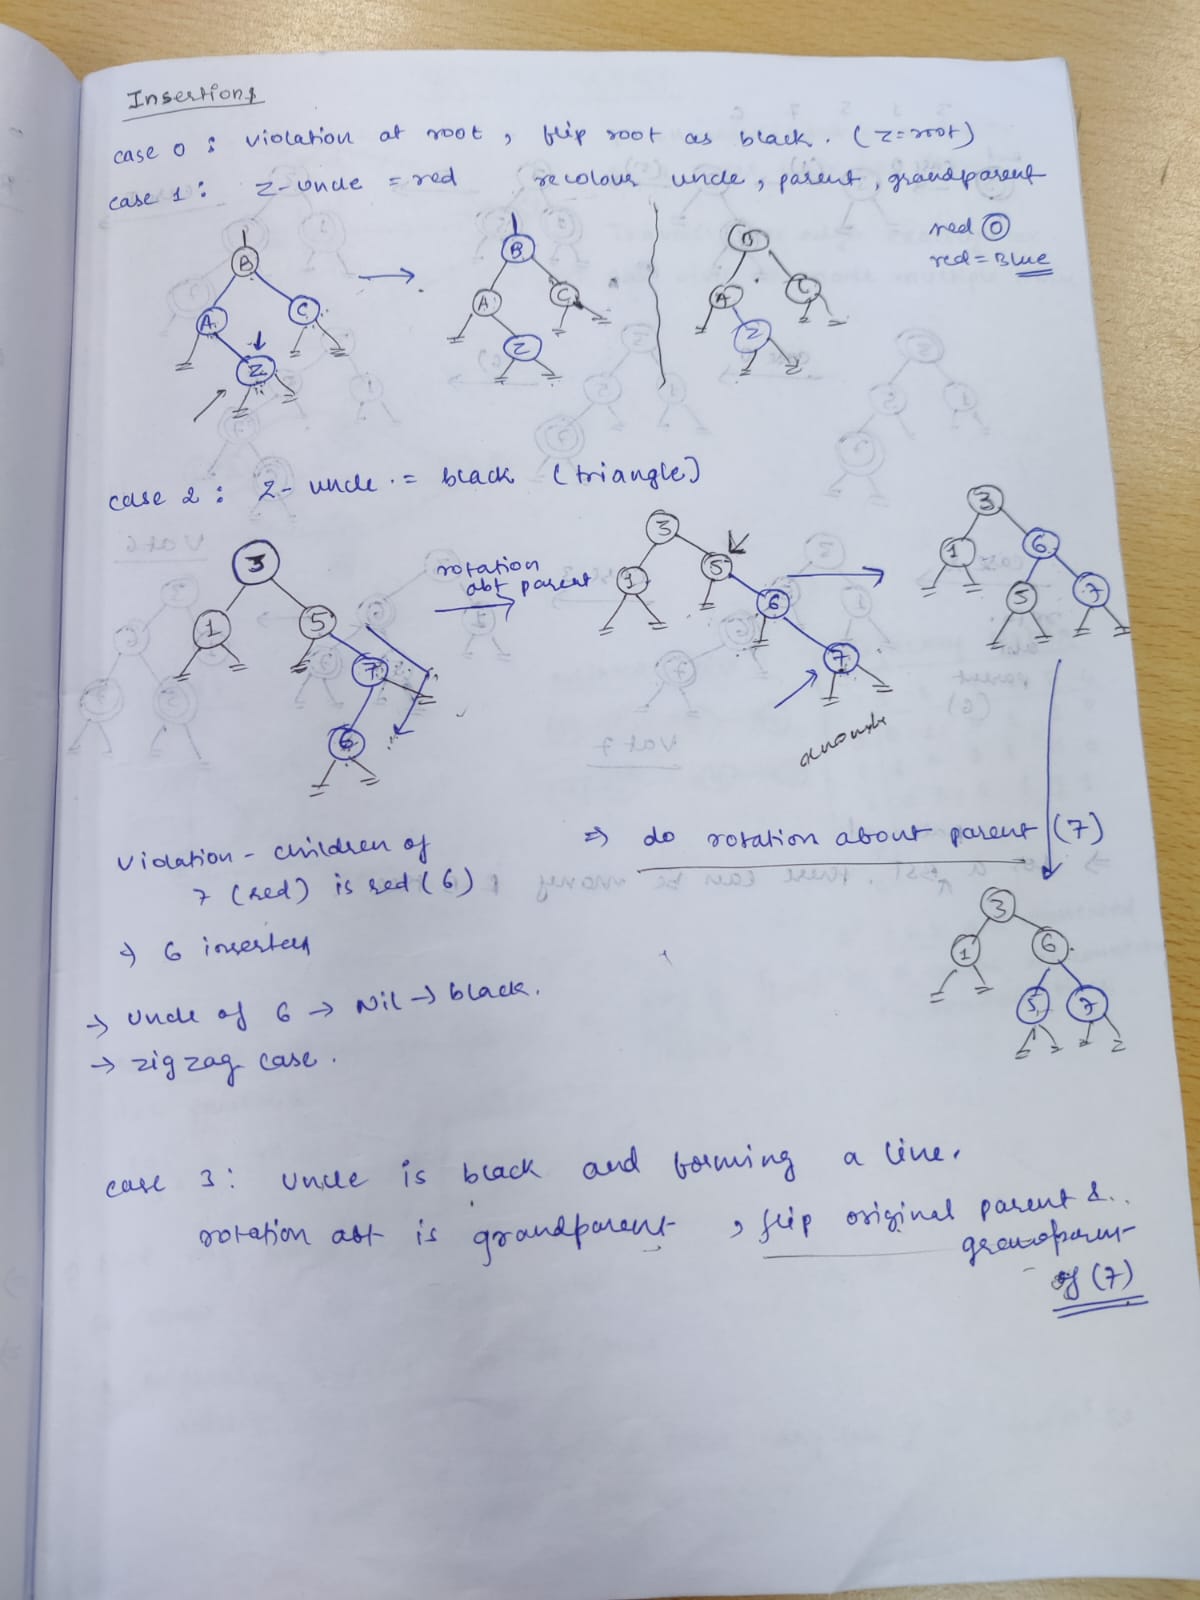 Insertions
case 0 : violation at root , flip root as black. (z=root)
case 1 : z-uncle = red recolour uncle, parent, grandparent
red O
red = Blue
B
A
C
Z
B
A
C
Z
B
A
C
Z
case 2 : z-uncle = black (triangle)
3
1
5
7
6
rotation
abt parent
3
1
5
6
7
3
1
6
5
7
violation - children of
7 (red) is red (6)
→ 6 inserted
→ uncle of 6 → Nil → black.
→ zigzag case.
⇒ do rotation about parent (7)
3
1
6
5
7
case 3 : uncle is black and forming a line.
rotation abt is grandparent , flip original parent &
grandparent
of (7)